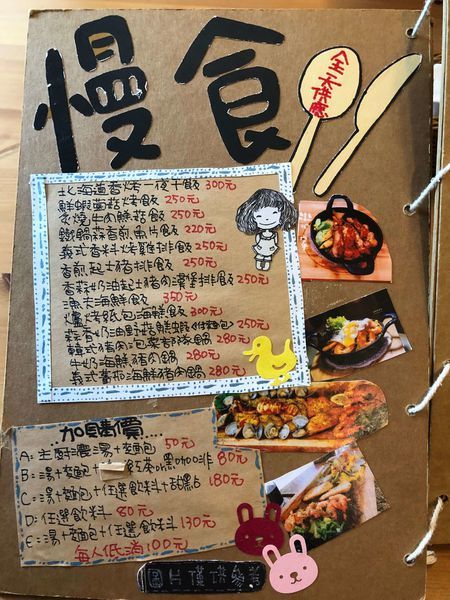 慢食
全天供應
北海道香烤一夜干飯 300元
鮮蝦薑菇烤飯 250元
炙燒牛肉鮮菇飯 250元
鐵鍋蒜香煎雨片飯 220元
義式香料烤雞排飯 250元
香煎起士豬排飯 250元
香菇奶油起士豬肉漢堡排飯 250元
漁夫海鮮飯 350元
爐烤紙包海鮮飯 300元
蒜香奶油野菇鮮蝦(附麵包) 250元
韓式豬肉泡菜部隊鍋 280元
牛奶海鮮豬肉鍋 280元
義式蕃茄海鮮豬肉鍋 280元
加購價....
A: 主廚濃湯+麵包 50元
B: 湯+麵包+紅茶or黑咖啡 80元
C: 湯+麵包+任選飲料+甜點 180元
D: 任選飲料 80元
E: 湯+麵包+任選飲料 130元
每人低消100元
圖片僅供參考